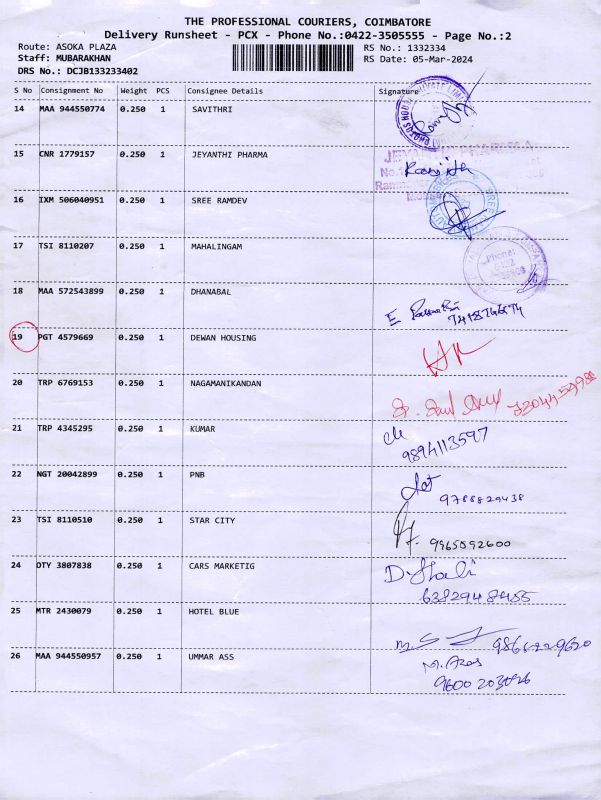 THE PROFESSIONAL COURIERS, COIMBATORE
Delivery Runsheet - PCX - Phone No.:0422-3505555 - Page No.:2
Route: ASOKA PLAZA RS No.: 1332334
Staff: MUBARAKHAN RS Date: 05-Mar-2024
DRS No.: DCJB133233402
S No Consignment No Weight PCS Consignee Details Signature
14 MAA 944550774 0.250 1 SAVITHRI
15 CNR 1779157 0.250 1 JEYANTHI PHARMA
16 IXM 506040951 0.250 1 SREE RAMDEV
17 TSI 8110207 0.250 1 MAHALINGAM
Phone:
18 MAA 572543899 0.250 1 DHANABAL
19 PGT 4579669 0.250 1 DEWAN HOUSING
20 TRP 6769153 0.250 1 NAGAMANIKANDAN
21 TRP 4345295 0.250 1 KUMAR
9894113597
22 NGT 20042899 0.250 1 PNB
9788829438
23 TSI 8110510 0.250 1 STAR CITY
9965592600
24 OTY 3807838 0.250 1 CARS MARKETIG
6382948455
25 MTR 2430079 0.250 1 HOTEL BLUE
26 MAA 944550957 0.250 1 UMMAR ASS
9600203026